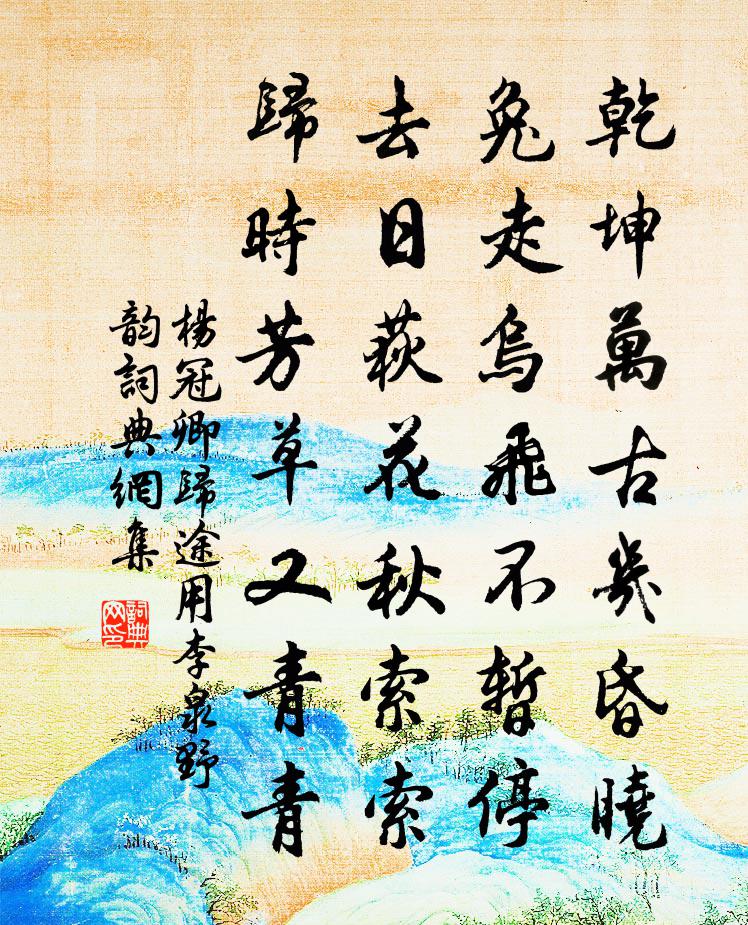 乾坤萬古幾昏曉
兔走烏飛不暫停
去日荻花秋索索
歸時芳草又青青
楊冠卿歸途用李泉野
韵詞典網集
詞典
网印